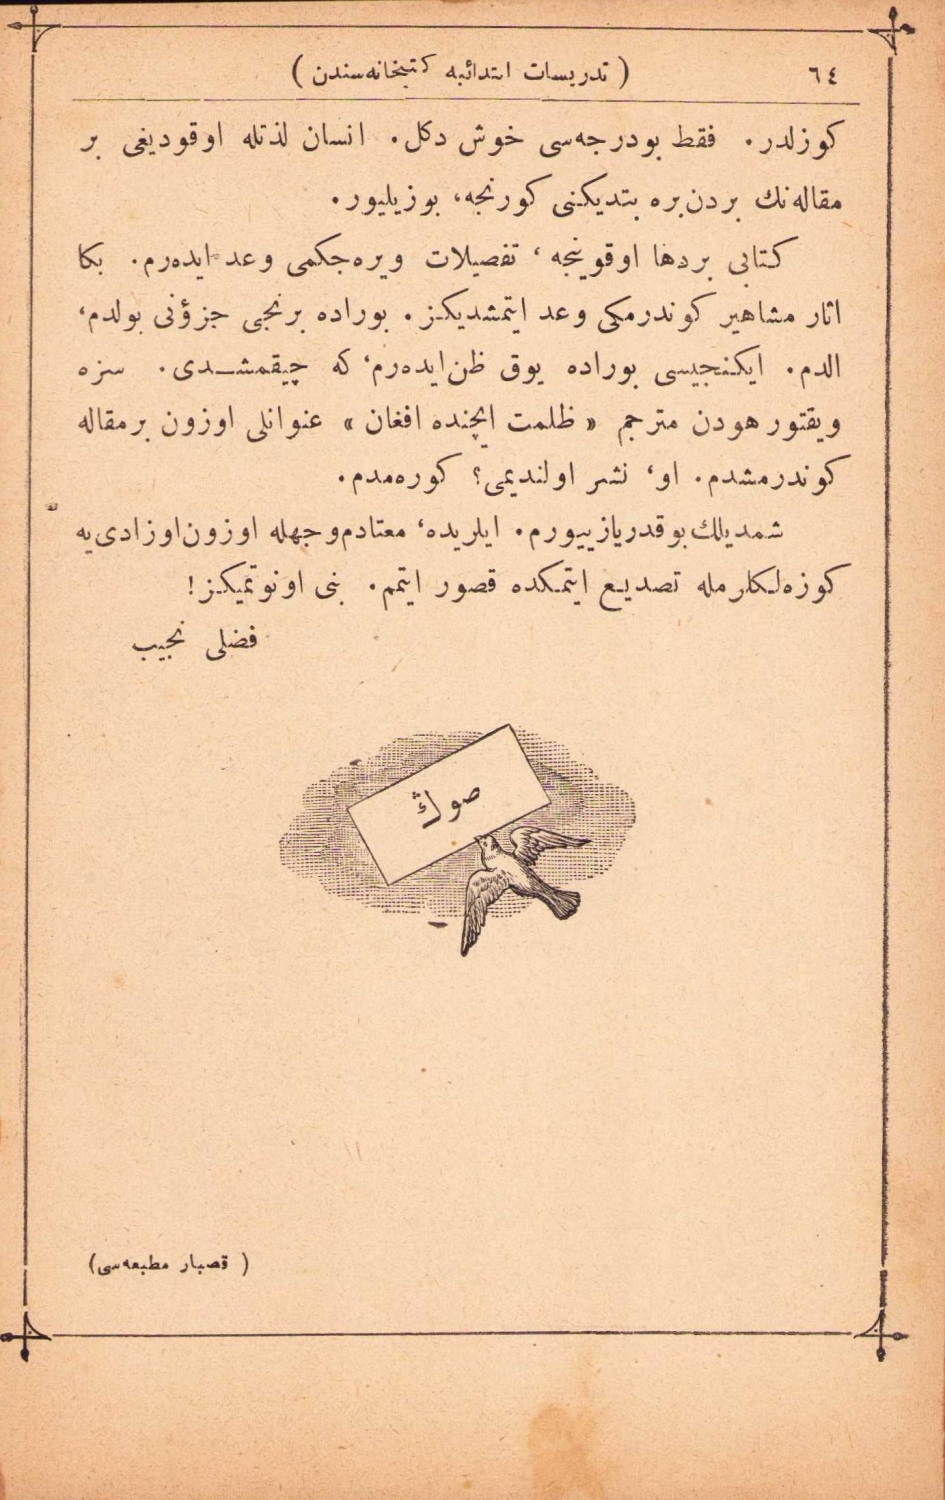 ٦٤
( تدريسات ابتدائيه كتبخانه‌سندن )
كوزلدر. فقط بودرجه‌سى خوش دكل. انسان لذتله اوقوديغى بر
مقاله‌نك بردن‌بره بتديكنى كورنجه، بوزيليور.
كتابى بردها اوقوينجه، تفصيلات ويره‌جكمى وعد ايده‌رم. بكا
اثار مشاهير كوندرمكى وعد ايتمشديكز. بوراده برنجى جزؤنى بولدم،
الدم. ايكنجيسى بوراده يوق ظن ايده‌رم، كه چيقمشدى. سزه
ويقتور هودن مترجم « ظلمت ايچنده افغان » عنوانلى اوزون برمقاله
كوندرمشدم. او، نشر اولنديمى؟ كوره‌مدم.
شمديلك بوقدر يازييورم. ايلريده، معتادم وجهله اوزون اوزادى‌يه
كوزه‌لكلرمله تصديع ايتمكده قصور ايتمم. بنى اونوتميكز!
فضلى نجيب
صوڭ
( قصبار مطبعه‌سى)